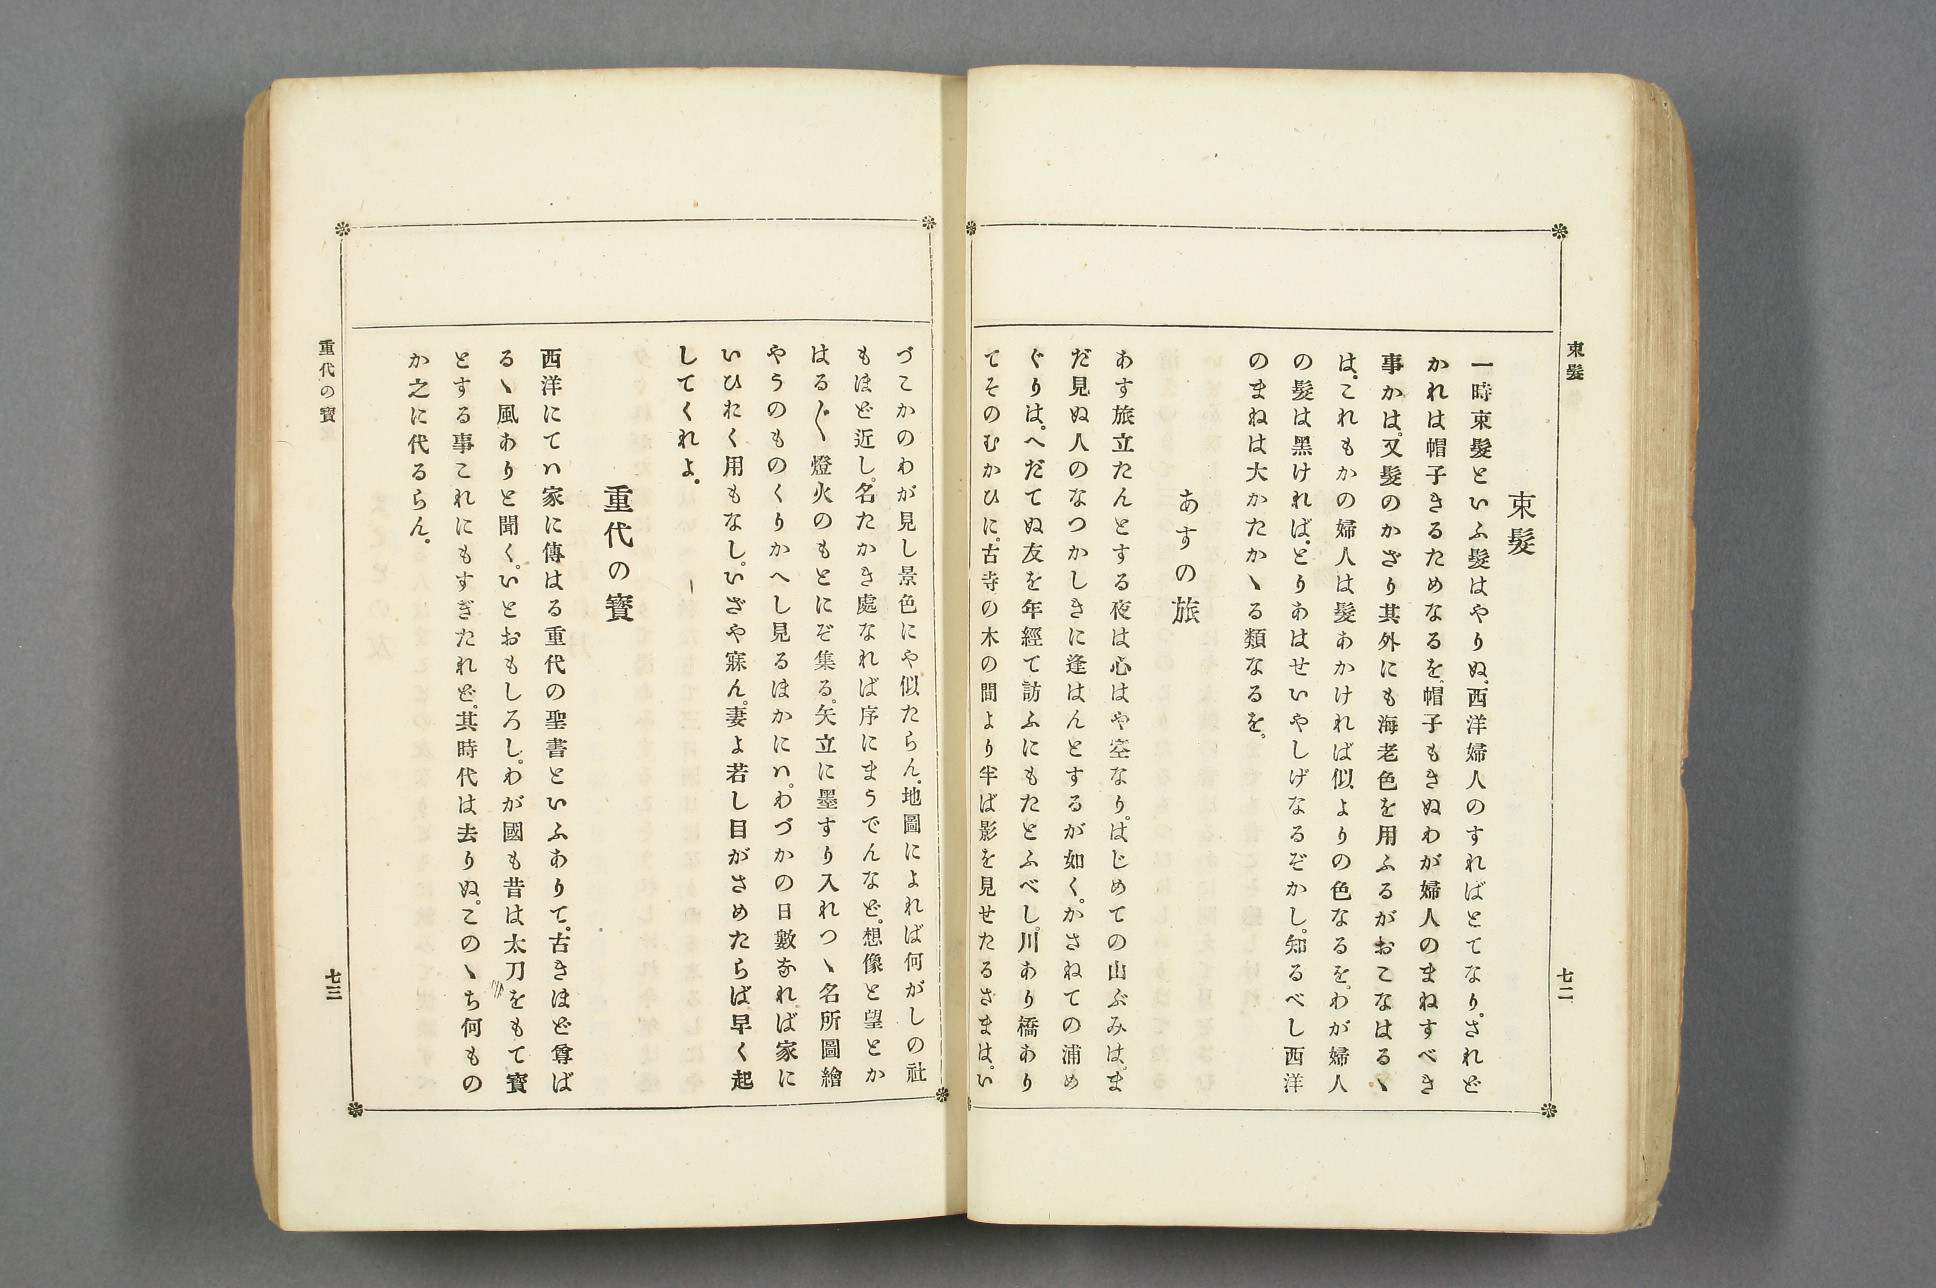 束髮
七二
束髮
一時束髮といふ髮はやりぬ、西洋婦人のすればとてなり。されど
かれは帽子きるためなるを、帽子もきぬわが婦人のまねすべき
事かは。又髮のかざり其外にも海老色を用ふるがおこなはるゝ
は、これもかの婦人は髮あかければ似よりの色なるを、わが婦人
の髮は黑ければ、とりあはせいやしげなるぞかし。知るべし西洋
のまねは大かたかゝる類なるを。
あすの旅
あす旅立たんとする夜は心はや空なり。はじめての山ぶみは、ま
だ見ぬ人のなつかしきに逢はんとするが如く、かさねての浦め
ぐりは、へだてぬ友を年經て訪ふにもたとふべし。川あり橋あり
てそのむかひに、古寺の木の間より半ば影を見せたるさまは、い
づこかのわが見し景色にや似たらん、地圖によれば何がしの社
もほど近し。名たかき處なれば序にまうでんなど、想像と望とか
はる〴〵燈火のもとにぞ集る。矢立に墨すり入れつゝ名所圖繪
やうのものくりかへし見るほかにハ、わづかの日數なれば家に
いひおく用もなし。いざや寐ん。妻よ若し目がさめたらば、早く起
してくれよ。
重代の寶
西洋にてハ家に傳はる重代の聖書といふありて、古きほど尊ば
るゝ風ありと聞く。いとおもしろし。わが國も昔は太刀をもて寶
とする事これにもすぎたれど、其時代は去りぬ。このゝち何もの
か之に代るらん。
重代の寶
七三